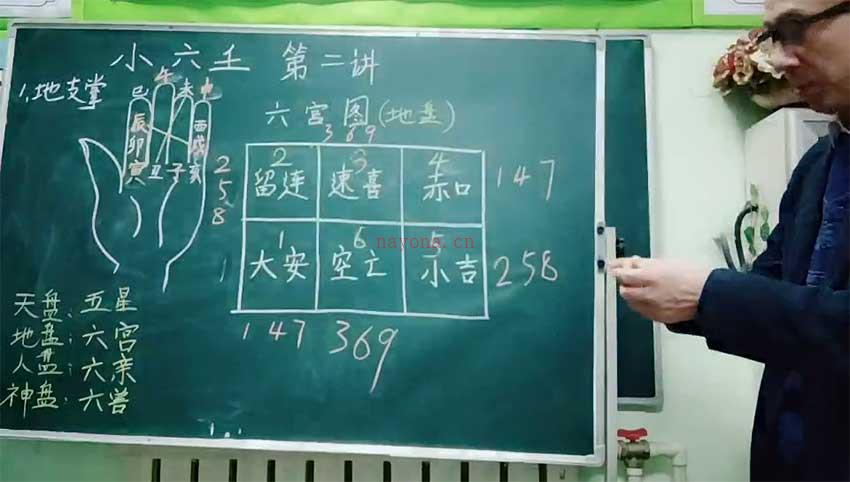 小六壬 第二讲
1.地支掌
巳 午 未 申
辰 酉
卯 戌
寅 丑 子 亥
六宫图(地盘)
369
2 3 4
留连 速喜 赤口
258
147
1 6 5
大安 空亡 小吉
1
258
147 369
天盘:五星
地盘:六宫
人盘:六亲
神盘:六兽
nayona.cn